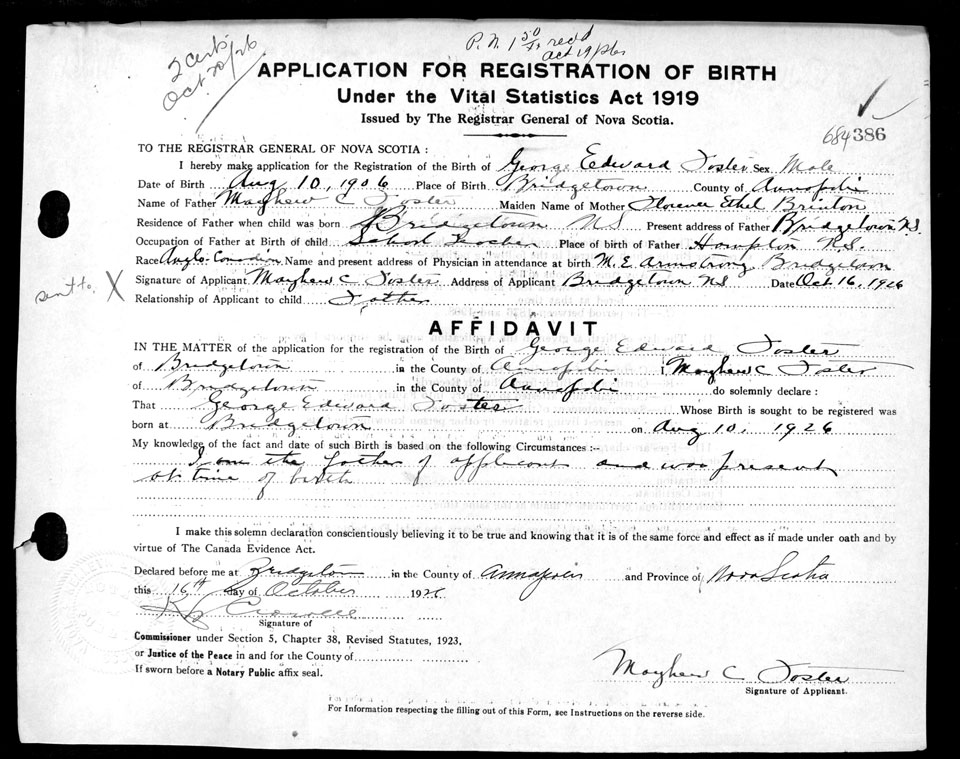 2 certs
Oct 20/26
P. N. 1 50 recd
Oct 19/26
APPLICATION FOR REGISTRATION OF BIRTH
Under the Vital Statistics Act 1919
Issued by The Registrar General of Nova Scotia.
684386
TO THE REGISTRAR GENERAL OF NOVA SCOTIA :
I hereby make application for the Registration of the Birth of George Edward Foster Sex Male
Date of Birth Aug 10, 1906 Place of Birth Bridgetown County of Annapolis
Name of Father Mayhew C Foster Maiden Name of Mother Florence Ethel Brinton
Residence of Father when child was born Bridgetown NS Present address of Father Bridgetown N.S.
Occupation of Father at Birth of child School Teacher Place of birth of Father Hampton N.S.
Race Anglo-Canadian Name and present address of Physician in attendance at birth M. E. Armstrong Bridgetown
Signature of Applicant Mayhew C Foster Address of Applicant Bridgetown NS Date Oct 16, 1926
sent to. X
Relationship of Applicant to child Father
AFFIDAVIT
IN THE MATTER of the application for the registration of the Birth of George Edward Foster
of Bridgetown in the County of Annapolis I, Mayhew C Foster
of Bridgetown in the County of Annapolis do solemnly declare :
That George Edward Foster Whose Birth is sought to be registered was
born at Bridgetown on Aug 10, 1926
My knowledge of the fact and date of such Birth is based on the following Circumstances :—
I am the father of applicant and was present
at time of birth
I make this solemn declaration conscientiously believing it to be true and knowing that it is of the same force and effect as if made under oath and by
virtue of The Canada Evidence Act.
Declared before me at Bridgetown in the County of Annapolis and Province of Nova Scotia
this 16th day of October 1926
Signature of
Commissioner under Section 5, Chapter 38, Revised Statutes, 1923,
or Justice of the Peace in and for the County of
If sworn before a Notary Public affix seal.
Mayhew C Foster
Signature of Applicant.
For Information respecting the filling out of this Form, see Instructions on the reverse side.